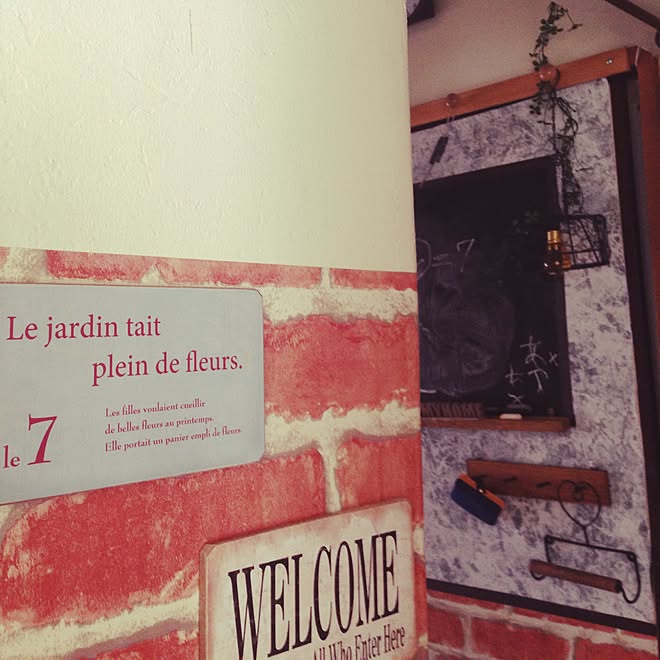 Le jardin tait
plein de fleurs.
le 7
Les filles voulaient cueillir
de belles fleurs au printemps.
Elle portait un panier empli de fleurs.
WELCOME
All Who Enter Here
=7
MYHOME